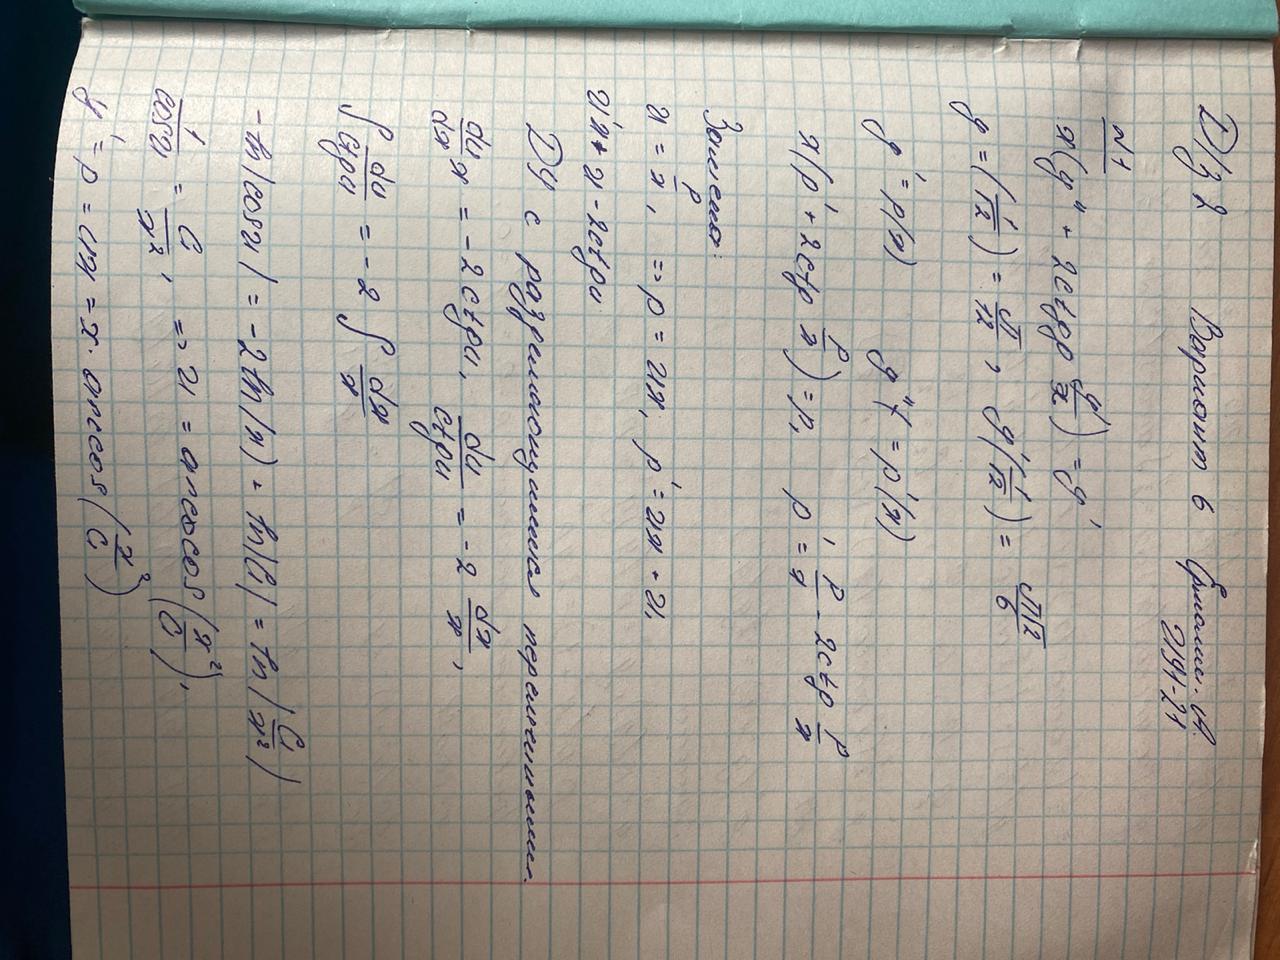 Д/з 2 Вариант 6
21У-21
N1
x(y" + 2ctg y'/x) = y'
y = (1/√2) = π/12, y'(1/√2) = π√2/6
y' = p(x) y" = p'(x)
x(p' + 2ctg p/x) = p, p' = p/x - 2ctg p/x
Замена:
u = p/x, => p = ux, p' = u'x + u,
u'x + u - 2ctg u
ДУ с разделяющимися переменными.
du/dx x = -2ctg u, du/ctg u = -2 dx/x,
∫ du/ctg u = -2 ∫ dx/x
-ln|cos u| = -2ln|x| + ln|C| = ln|C/x²|
1/cos u = C/x², => u = arccos(x²/C),
y' = p = ux = x · arccos(x²/C)